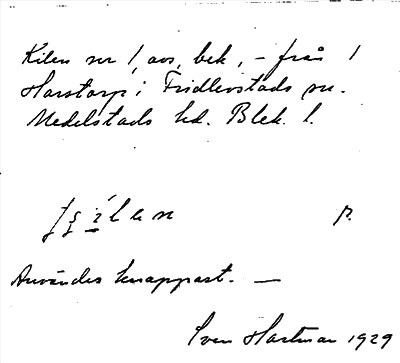 Kilen nr 1, avs, bek, - från 1
Harstorp i Fridlevstads sn.
Medelstads hd. Blek. l.
ʃçi̱len p.
Användes knappast. —
Sven Hartman 1929